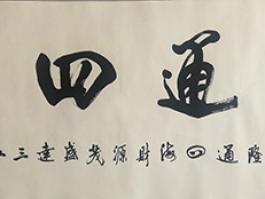 通四
隆通四海財源茂盛達三